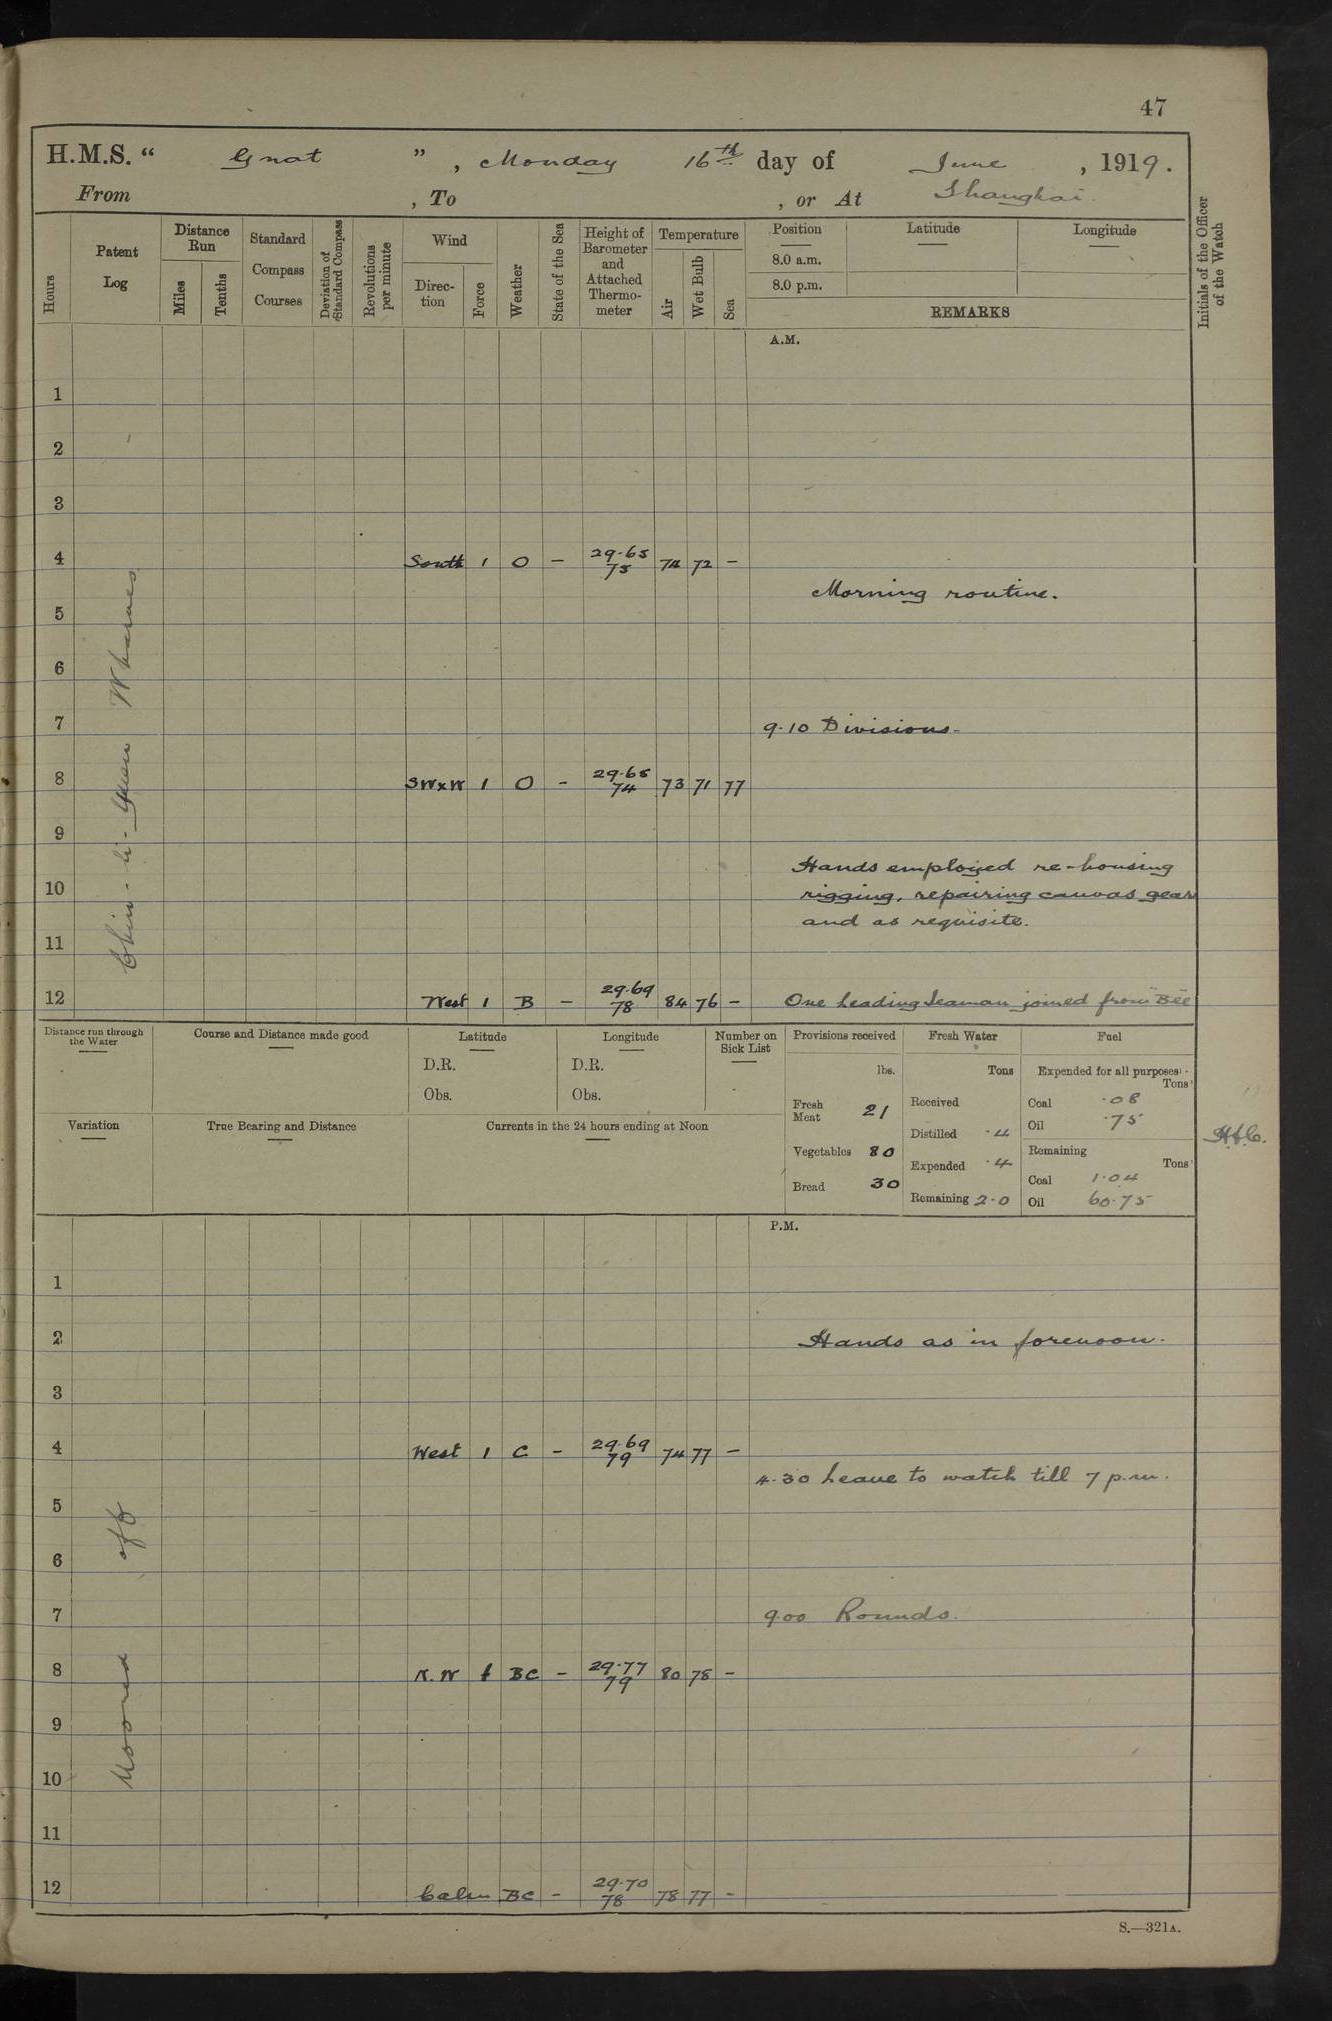 47
H.M.S. “ Gnat ” , Monday 16th day of June , 1919.
From , To , or At Shanghai.
Hours
Patent Log
Distance Run
Miles
Tenths
Standard Compass Courses
Deviation of Standard Compass
Revolutions per minute
Wind
Direction
Force
Weather
State of the Sea
Height of Barometer and Attached Thermometer
Temperature
Air
Wet Bulb
Sea
Position
8.0 a.m.
8.0 p.m.
Latitude
Longitude
REMARKS
Initials of the Officer of the Watch
A.M.
1
2
3
4 South 1 O - 29.65 75 74 72 -
Morning routine.
5
6
7
9.10 Divisions.
8 SW×W 1 O - 29.65 74 73 71 77
9
Hands employed re-housing
10 rigging, repairing canvas gear
and as requisite.
11
12 West 1 B - 29.69 78 84 76 - One Leading Seaman joined from "Bee"
Distance run through the Water
Course and Distance made good
Latitude
D.R.
Obs.
Longitude
D.R.
Obs.
Number on Sick List
Variation
True Bearing and Distance
Currents in the 24 hours ending at Noon
Provisions received
lbs.
Fresh Meat 21
Vegetables 80
Bread 30
Fresh Water
Tons
Received
Distilled .4
Expended .4
Remaining 2.0
Fuel
Expended for all purposes
Tons
Coal .08
Oil .75
Remaining
Tons
Coal 1.04
Oil 60.75
P.M.
1
2 Hands as in forenoon.
3
4 West 1 C - 29.69 79 74 77 -
4.30 Leave to watch till 7 p.m.
5
6
7 9.00 Rounds.
8 N.W 1 BC - 29.77 79 80 78 -
9
10
11
12 Calm BC - 29.70 78 78 77 -
Moored off Wharves
S.—321A.